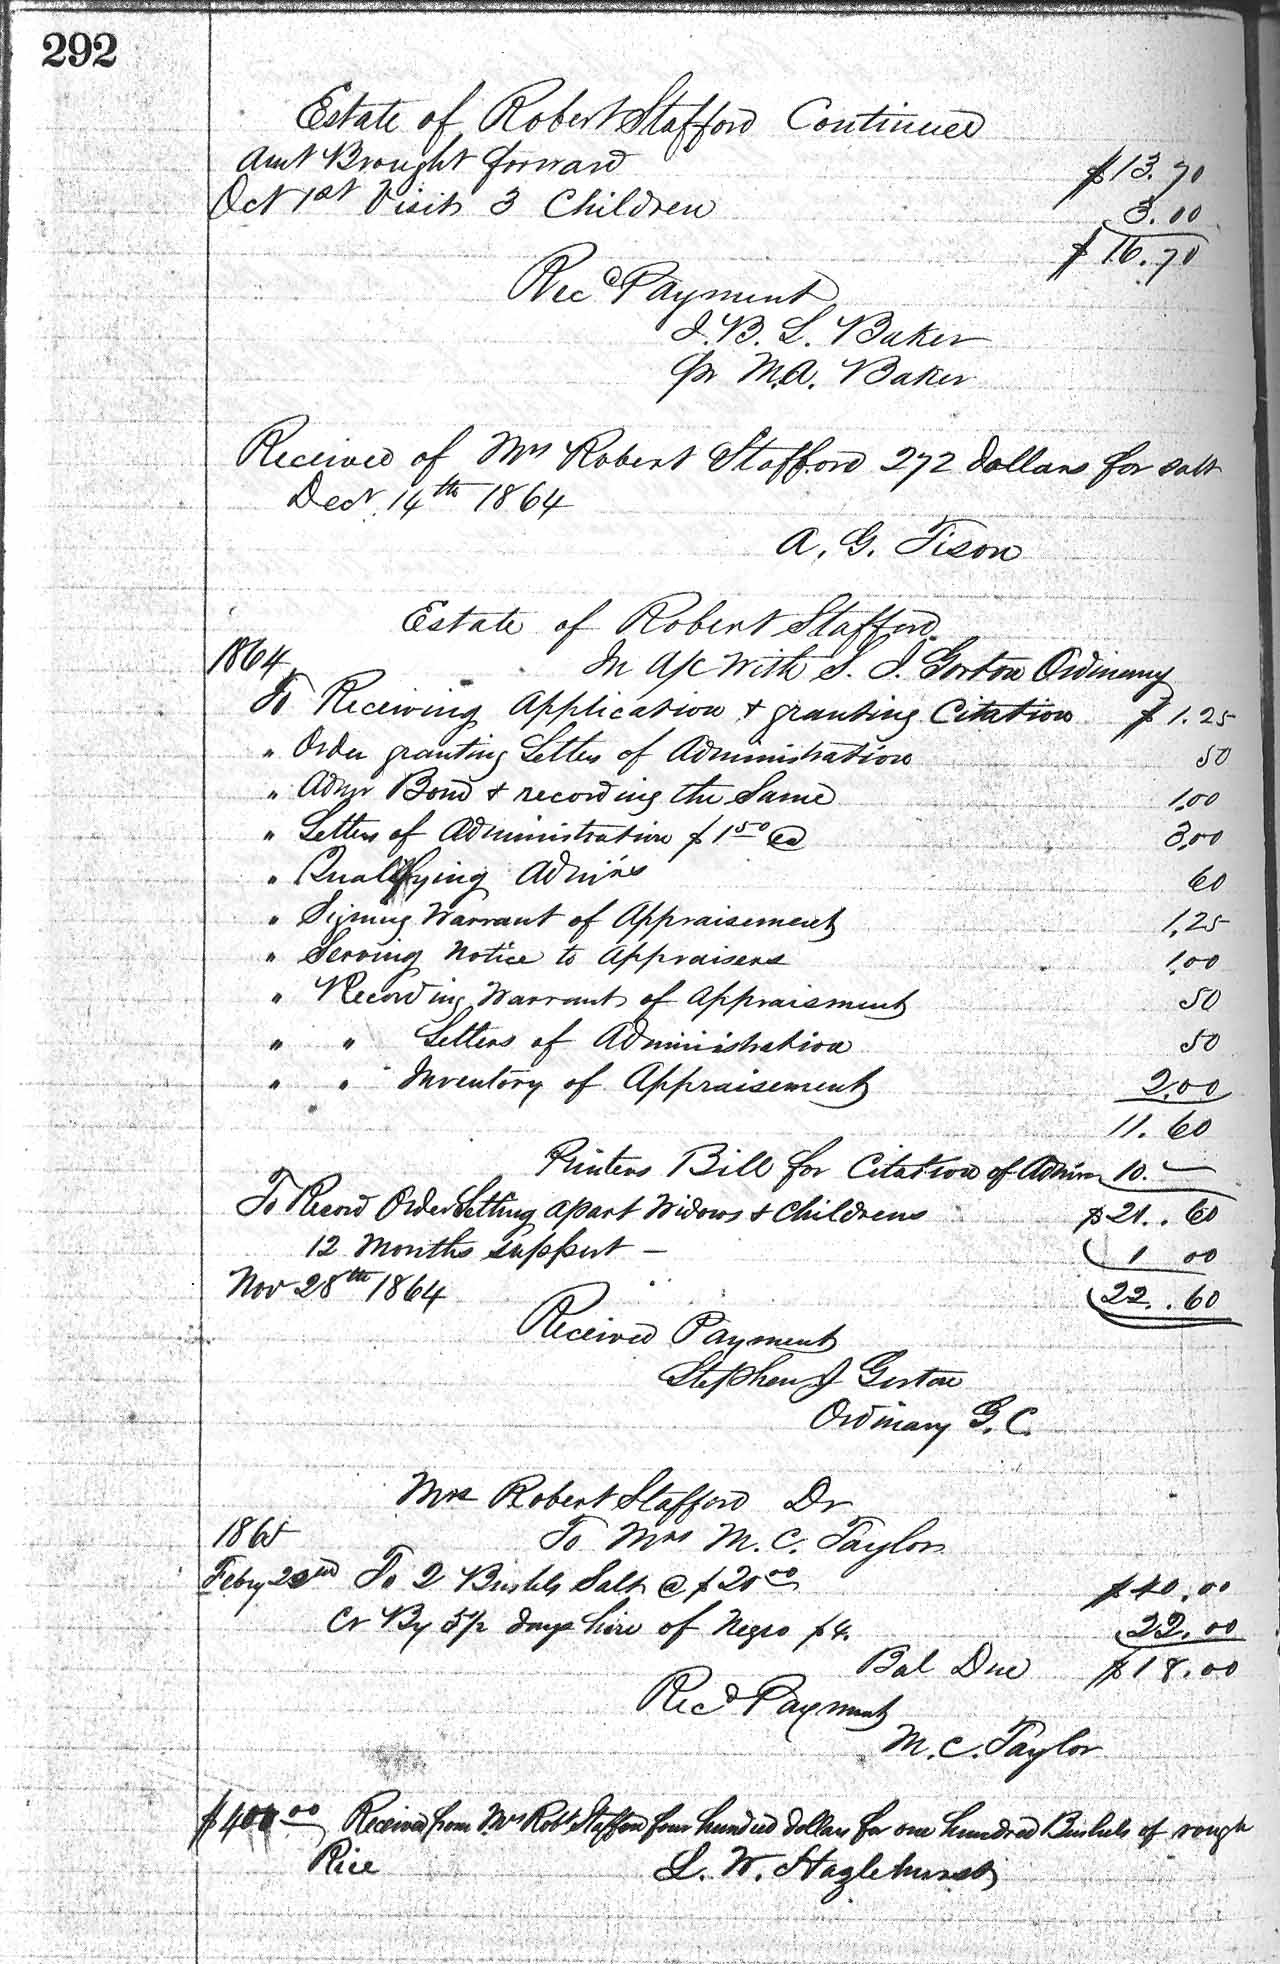 292
Estate of Robert Stafford Continued
Amt Brought forward $13.70
Oct 1st Visit 3 Children 3.00
$16.70
Recd Payment
J. B. L. Baker
pr M.A. Baker
Received of Mrs Robert Stafford 272 dollars for salt
Decr. 14th 1864
A. G. Tison
Estate of Robert Stafford
1864 In a/c With S. J. Gorton Ordinary
To Receiving Application & granting Citation $1.25
" Order granting Letters of Administration 50
" Admr Bond & recording the Same 1.00
" Letters of Administration $1 50 ea 3.00
" Qualifying Admrs 60
" Signing Warrant of Appraisement 1.25
" Serving Notice to Appraisers 1.00
" Recording Warrant of Appraisment 50
" " Letters of Administration 50
" " Inventory of Appraisement 2.00
11.60
Printers Bill for Citation of Admn 10.—
To Record Order Setting apart Widows & Childrens $21..60
12 Months support — 1 00
Nov 28th 1864 22..60
Received Payment
Stephen J Gorton
Ordinary G. C.
Mrs Robert Stafford Dr
1865 To Mrs M. C. Taylor
Feby 22nd To 2 Bushels Salt @ $20 00 $40.00
Cr By 5 1/2 days hire of Negro $4. 22.00
Bal Due $18.00
Recd Payment
M. C. Taylor
$400 00 Received from Mrs Robt Stafford four hundred dollars for one hundred Bushels of rough
Rice L. W. Hazlehurst